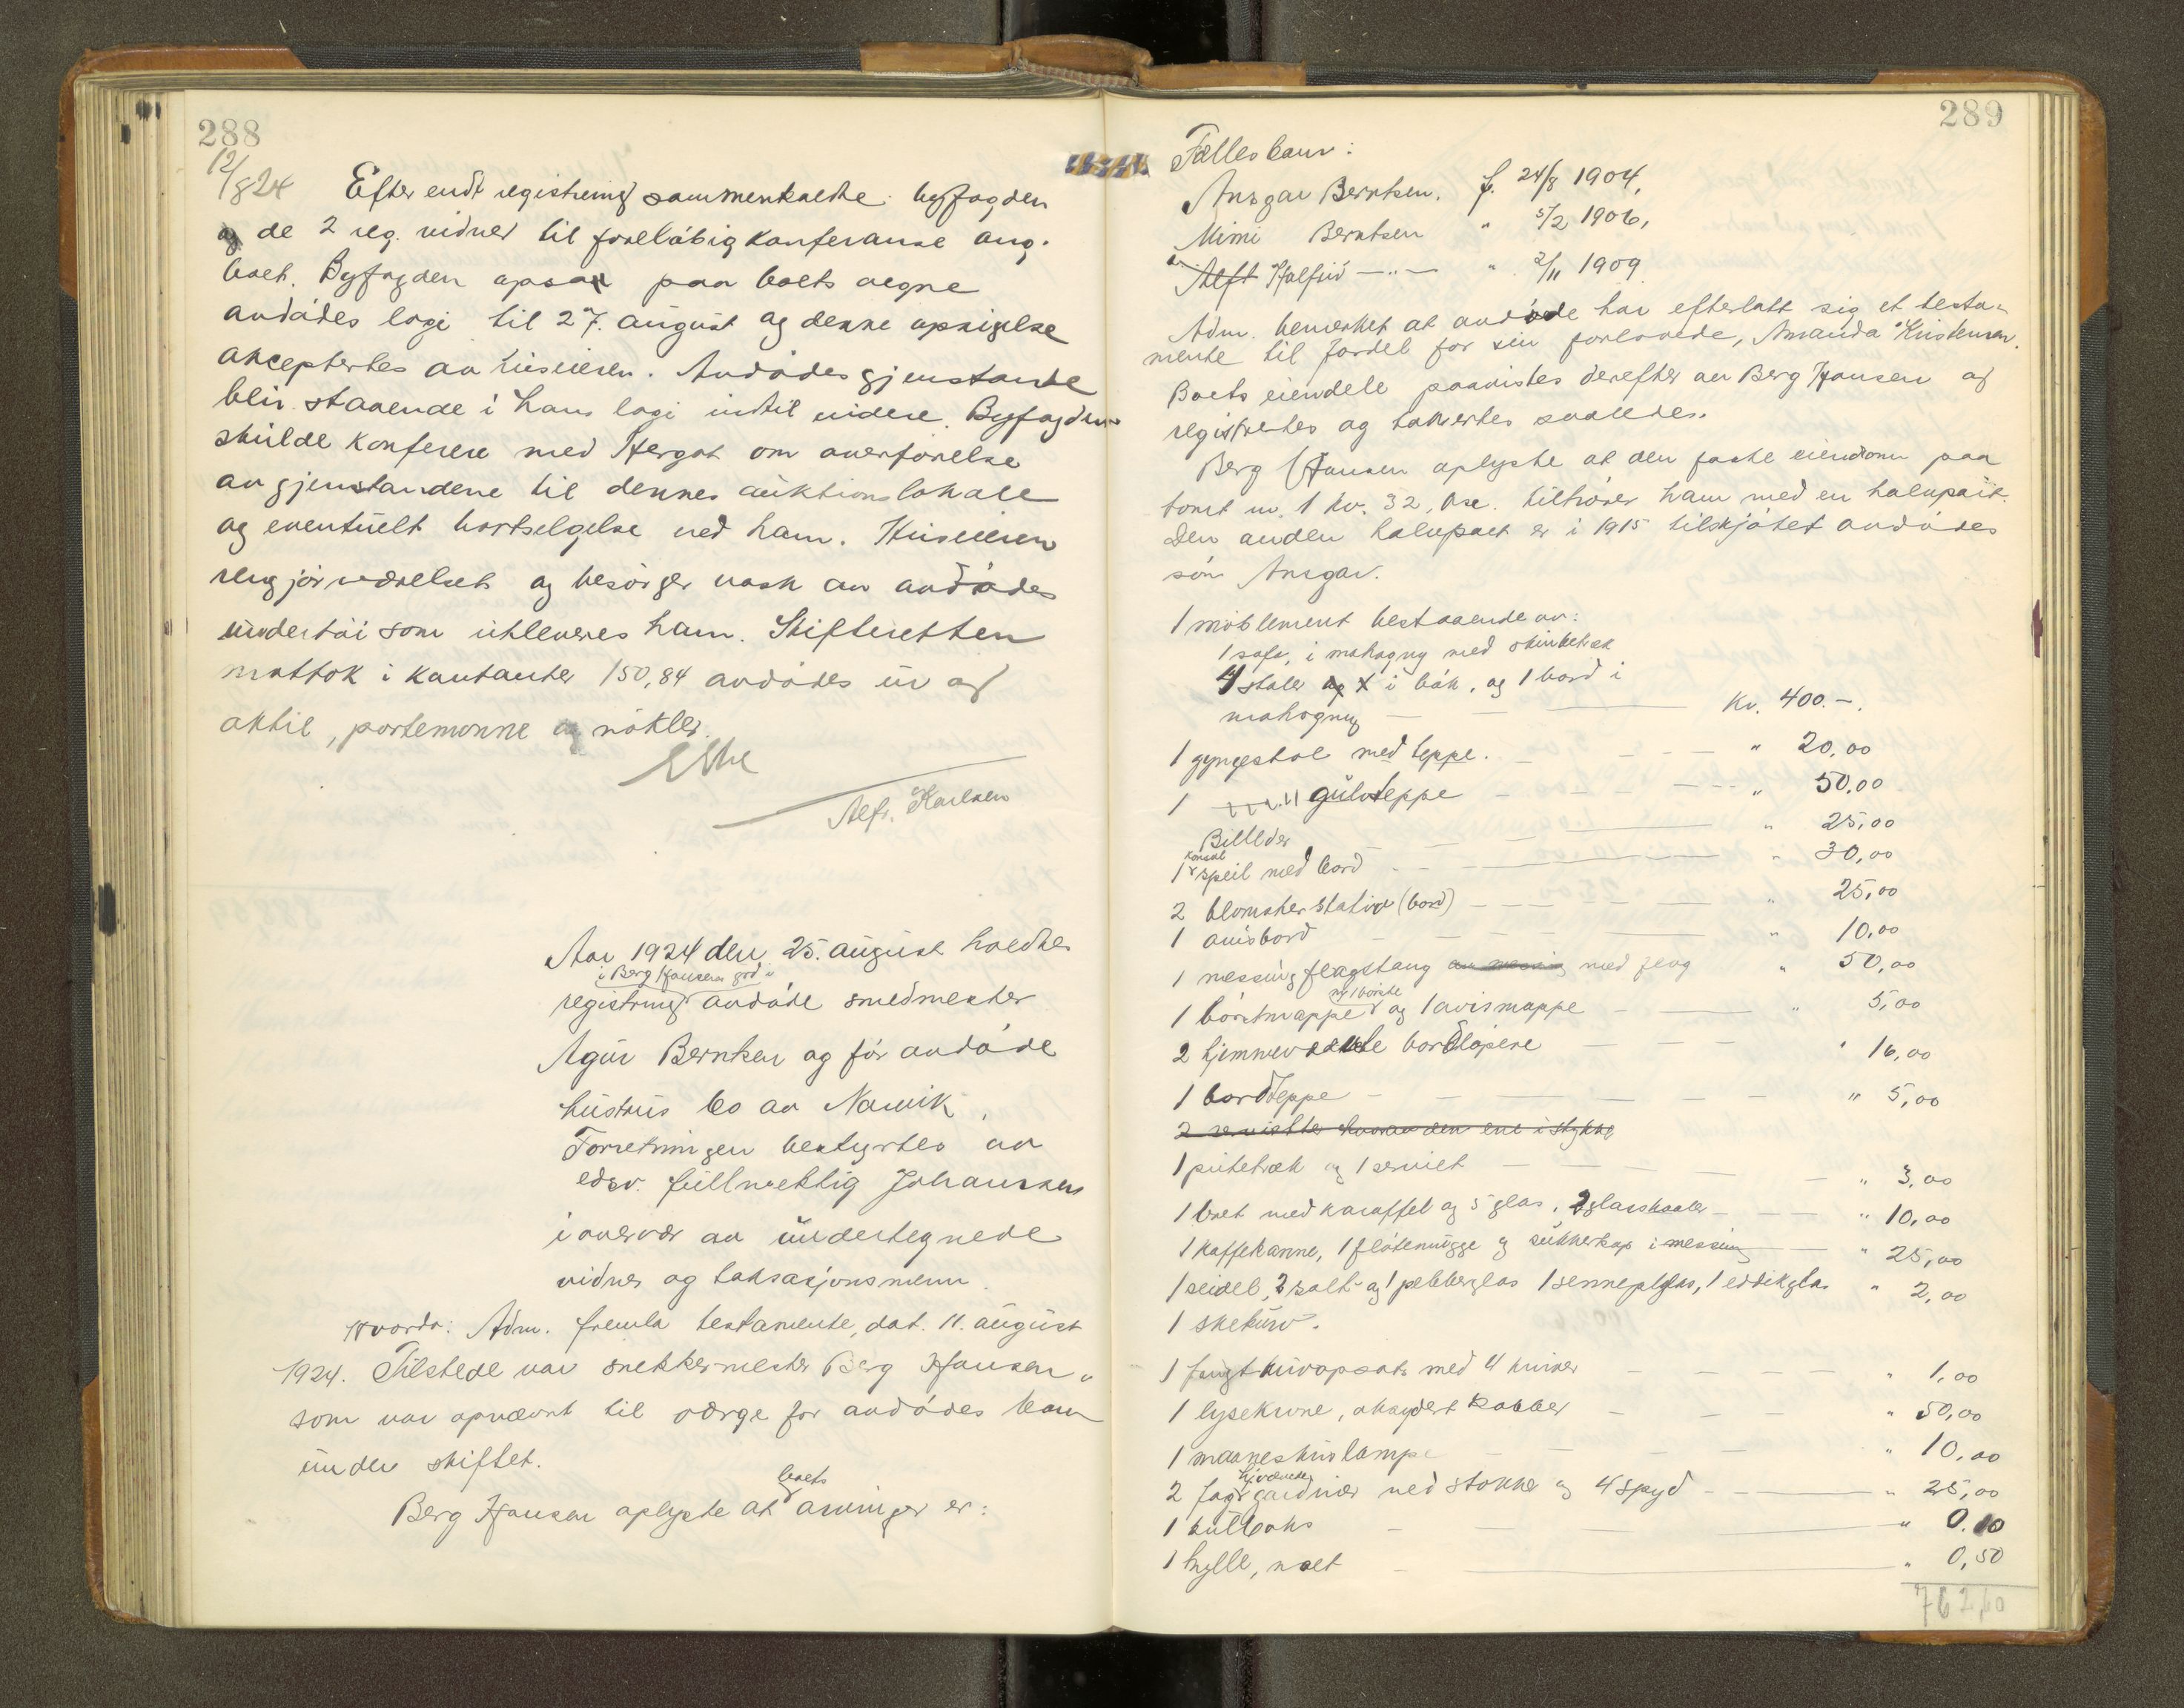 288
12/8 24 Efter endt registrering sammenkaldte byfogden
og de 2 reg. vidner til foreløbig konferanse ang.
boet. Byfogden opsa paa boets vegne
avdødes logi til 27. august og denne opsigelse
akseptertes av huseieren. Avdødes gjenstande
blir staaende i hans logi indtil videre. Byfogden
skulde konferere med Hergot om overførelse
av gjenstandene til dennes auktionslokale
og eventuelt bortselgelse ved ham. Huseieren
rengjør værelset og besørger vask av avdødes
undertøi som utleveres ham. Skifteretten
mottok i kontanter 150,84 avdødes ur og
aktie, portemonne og nøkler.
Alfr. Karlsen
Aar 1924 den 25. august holdtes
i Berg Hansens gård
registrering avdøde smedmester
Agur Berntsen og før avdøde
hustrus bo av Narvik.
Forretningen bestyrtes av
edsv. fullmektig Johanssen
i overvær av undertegnede
vidner og taksasjonsmenn.
Hvorda: Adm. fremla testamente, dat. 11. august
1924. Tilstede var snekkermester Berg Hansen
som var opnævnt til værge for avdødes barn
under skiftet.
Berg Hansen oplyste at boets arvinger er:
289
Fællesbarn:
Ansgar Berntsen, f. 24/8 1904,
Mimi Berntsen " 5/2 1906,
Alft Halfrid —"— " 2/11 1909.
Adm. bemerket at avdøde har efterlatt sig et testa-
mente til fordel for sin forlovede, Amanda Kristensen.
Boets eiendele paavistes derefter av Berg Hansen og
registrertes og takertes saaledes.
Berg Hansen oplyste at den faste eiendom paa
tomt nr. 1 kv. 32, Ose. tilhører ham med en halvpart.
Den anden halvpart er i 1915 tilskjøtet avdødes
søn Ansgar.
1 møblement bestaaende av:
1 sofa, i mahogny med skinbetræk
4 stoler i bøk, og 1 bord i
mahogny — — — Kr. 400.-.
1 gyngestol med teppe. — — " 20,00
1 gulvteppe — — " 50,00
Billeder — — " 25,00
1 konsol speil med bord — — " 30,00
2 blomsterstativ (bord) — — " 25,00
1 avisbord — — " 10,00
1 messing flagstang av messing med flag " 50,00
1 børstmappe m/1 børste og 1 avismappe — — " 5,00
2 hjemmevævede bordløpere — — " 16,00
1 bordteppe — — " 5,00
2 servietter hvorav den ene i stykke
1 putetræk og 1 serviet — — " 3,00
1 bret med karaffel og 5 glas, 2 glasskaaler — — " 10,00
1 kaffekanne, 1 fløtemugge og sukkerkop i messing — " 25,00
1 seidel, 2 salt- og 1 pebberglas 1 sennepsglas, 1 eddikglas " 2,00
1 skekurv.
1 frugtknivopsats med 4 kniver — — " 1,00
1 lysekrone, oksydert kobber — — " 50,00
1 maaneskinslampe — — " 10,00
2 fag hjvævede gardiner med stokke og 4 spyd — — " 25,00
1 kulboks — — " 0.10
1 hylle, malt — — " 0,50
762,60